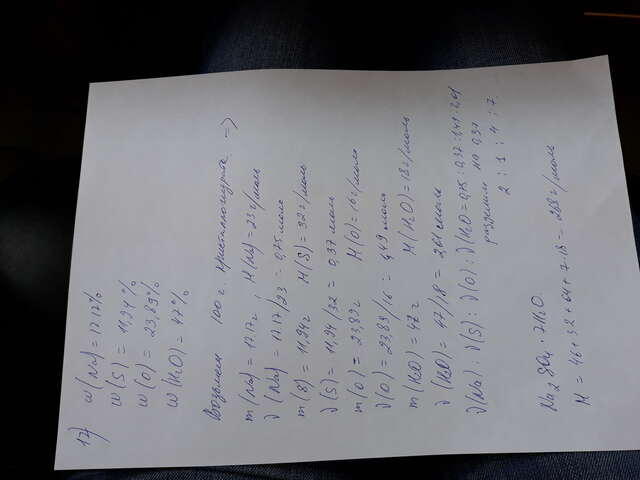 17)
w(Na) = 17.17%
w(S) = 11,94%
w(O) = 23,89%
w(H2O) = 47%
Возьмем 100 г. кристаллогидрата =>
m(Na) = 17.17г, M(Na) = 23 г/моль
ν(Na) = 17.17/23 = 0,75 моль
m(S) = 11,94г M(S) = 32 г/моль
ν(S) = 11,94/32 = 0,37 моль
m(O) = 23,89г M(O) = 16 г/моль
ν(O) = 23,89/16 = 1,49 моль
m(H2O) = 47 г M(H2O) = 18 г/моль
ν(H2O) = 47/18 = 2,61 моль
ν(Na) : ν(S) : ν(O) : ν(H2O = 0,75 : 0,37 : 1,49 : 2,61
разделим на 0,37
2 : 1 : 4 : 7
Na2SO4 · 7H2O.
M = 46+32+64+7·18 = 268 г/моль